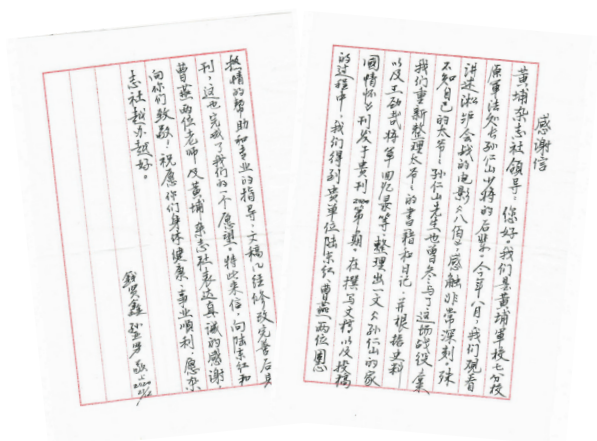 感谢信
黄埔杂志社领导：您好。我们是黄埔军校七分校
原军法处长孙仁山少将的后辈。今年八月，我们观看
讲述淞沪会战的电影《八佰》，感触非常深刻。殊
不知自己的太爷爷孙仁山先生也曾参与了这场战役，
我们重新整理太爷爷的书籍和日记，并根据史料
以及王劲哉将军回忆录等，整理出一文《孙仁山的家
国情怀》刊发于贵刊2020第期。在撰写文稿以及投稿
的过程中，我们得到贵单位陆东红、曹燕两位
热情的帮助和专业的指导。文稿几经修改完善后
刊，这也完成了我们的一个愿望。特此来信，向陆东红和
曹燕两位老师及黄埔杂志社表达真诚的感谢，
向你们致敬！祝愿你们身体健康、事业顺利，愿杂
志社越办越好。